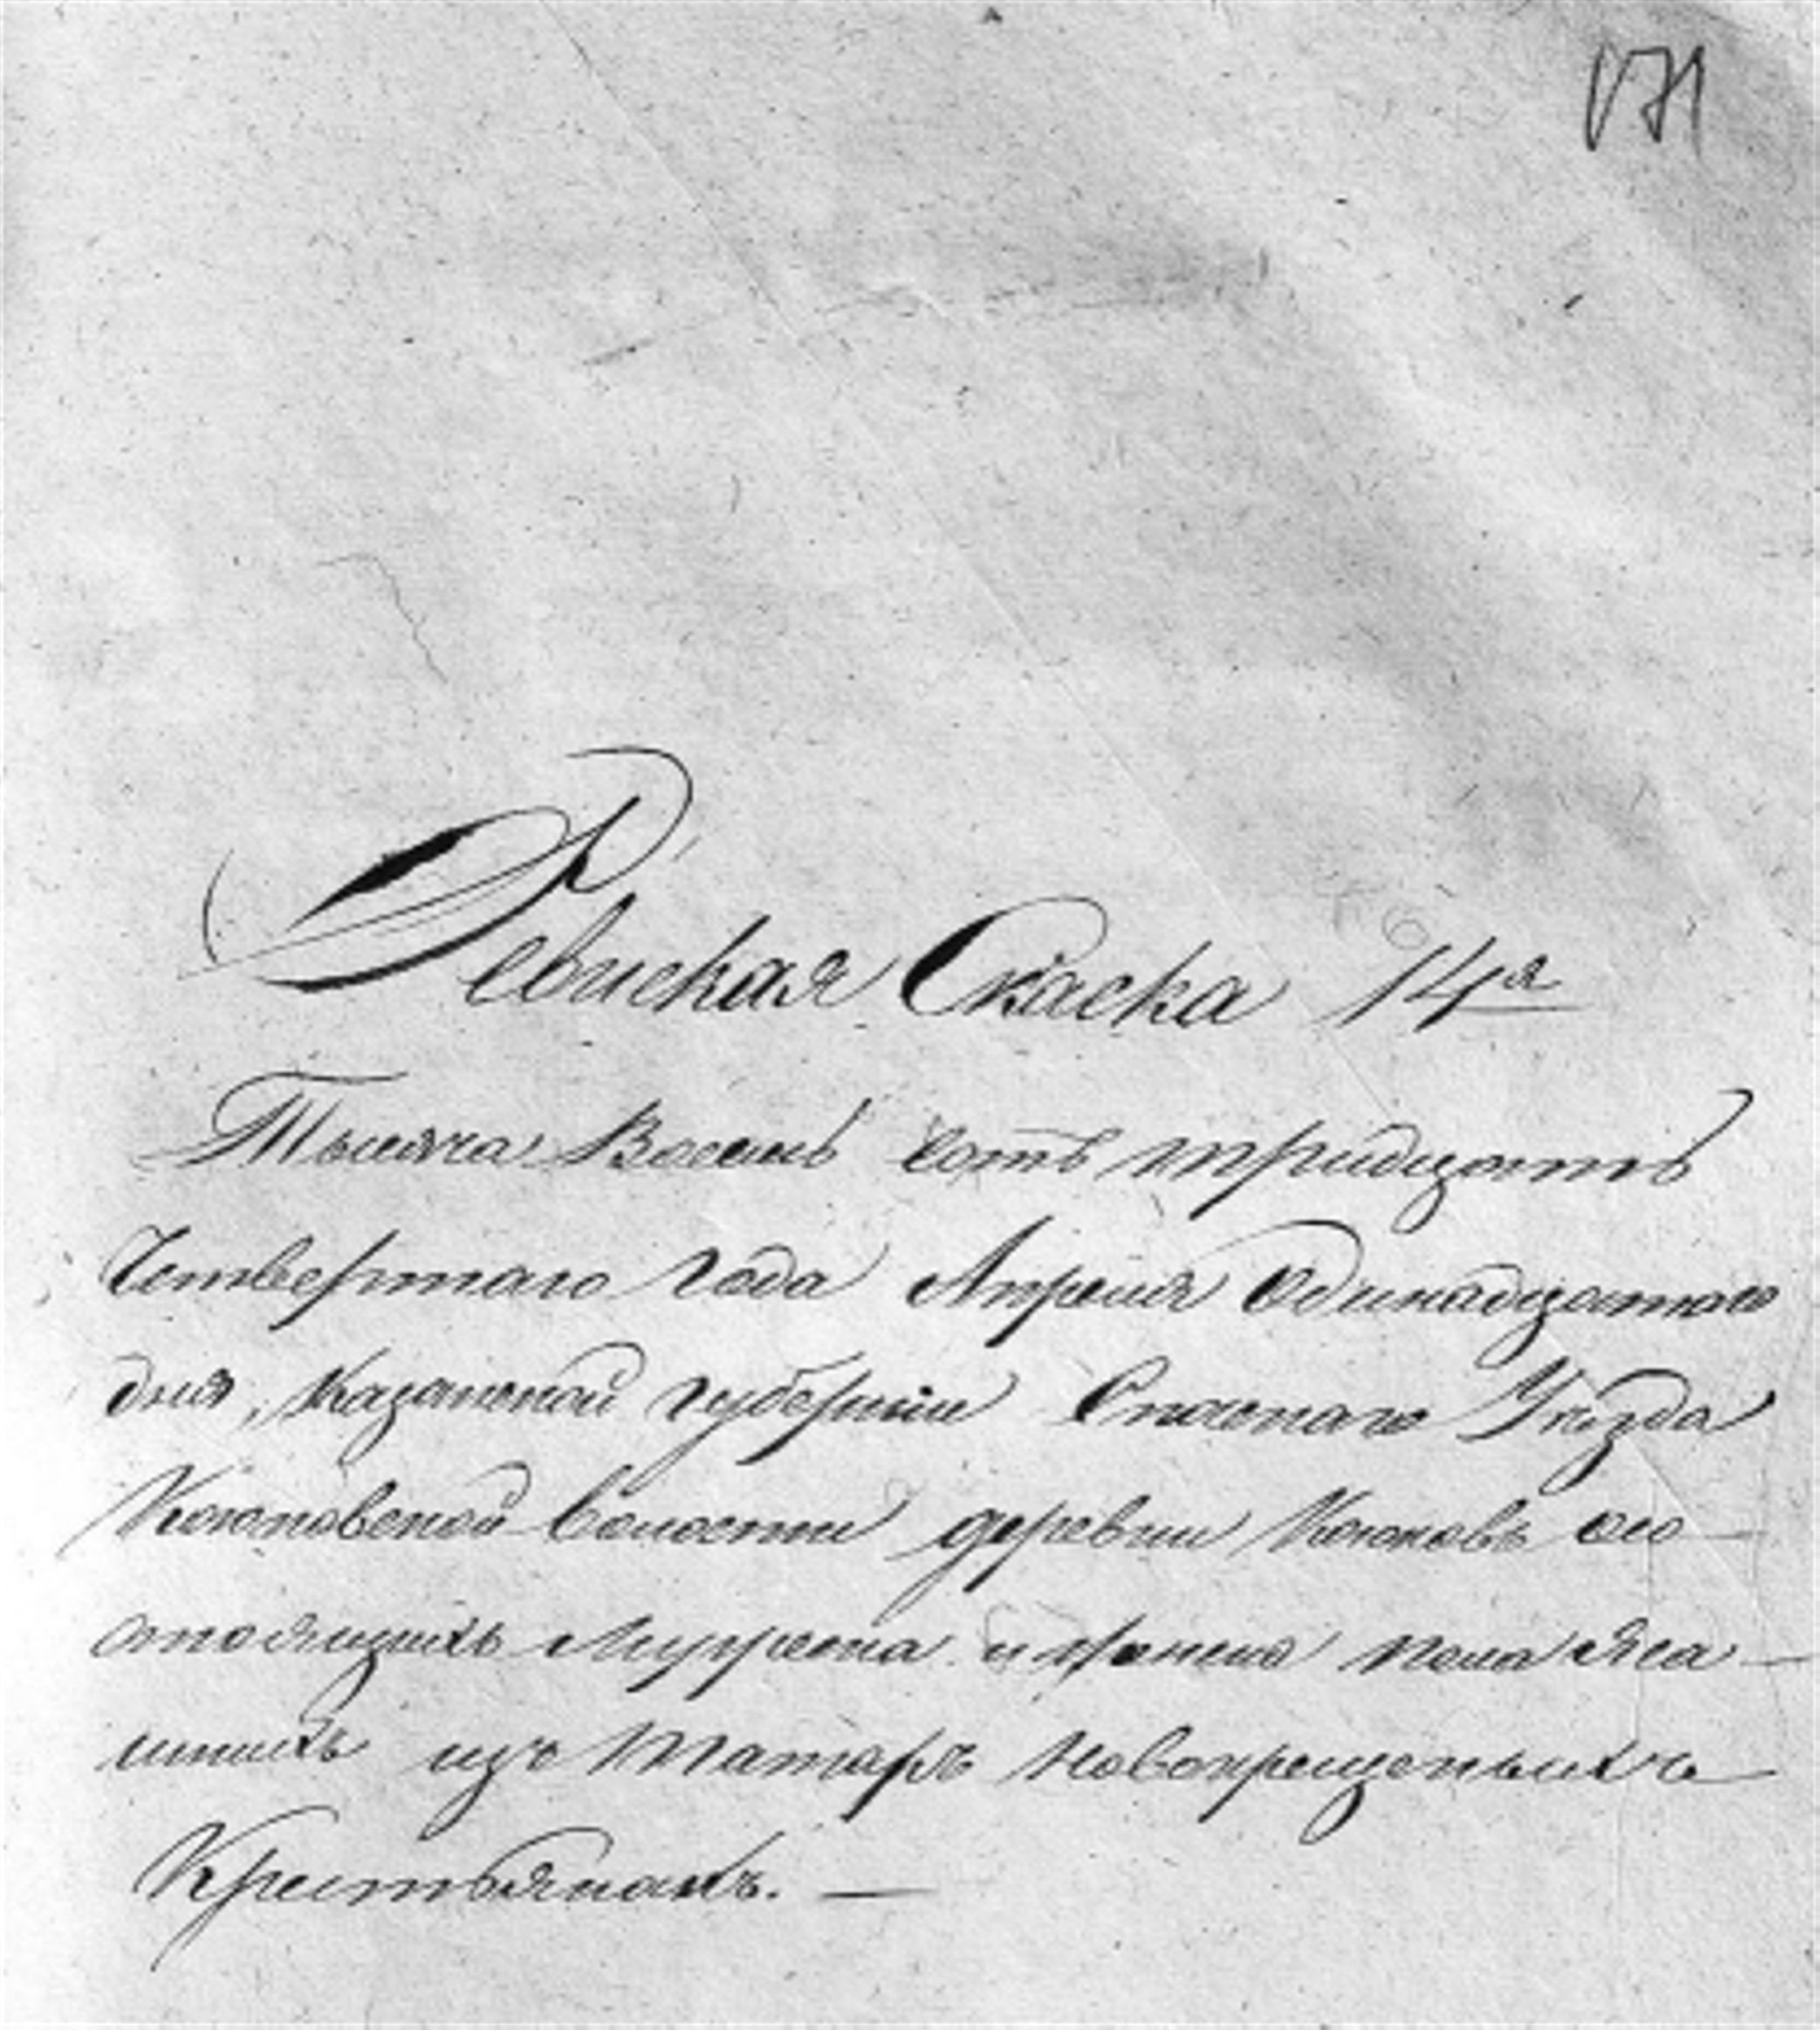 171
Ревиская Скаска 14я
Тысяча Восемь сотъ тридцать
Четвертаго года Апреля Одинадцатаго
дня, Казанской губернии Спаскаго Уѣзда
Коюковской волости деревни Коюковъ со
стоящихъ Мужеска и женска пола яса
шныхъ изъ Татаръ Новокрещеныхъ
Крестьянахъ. —